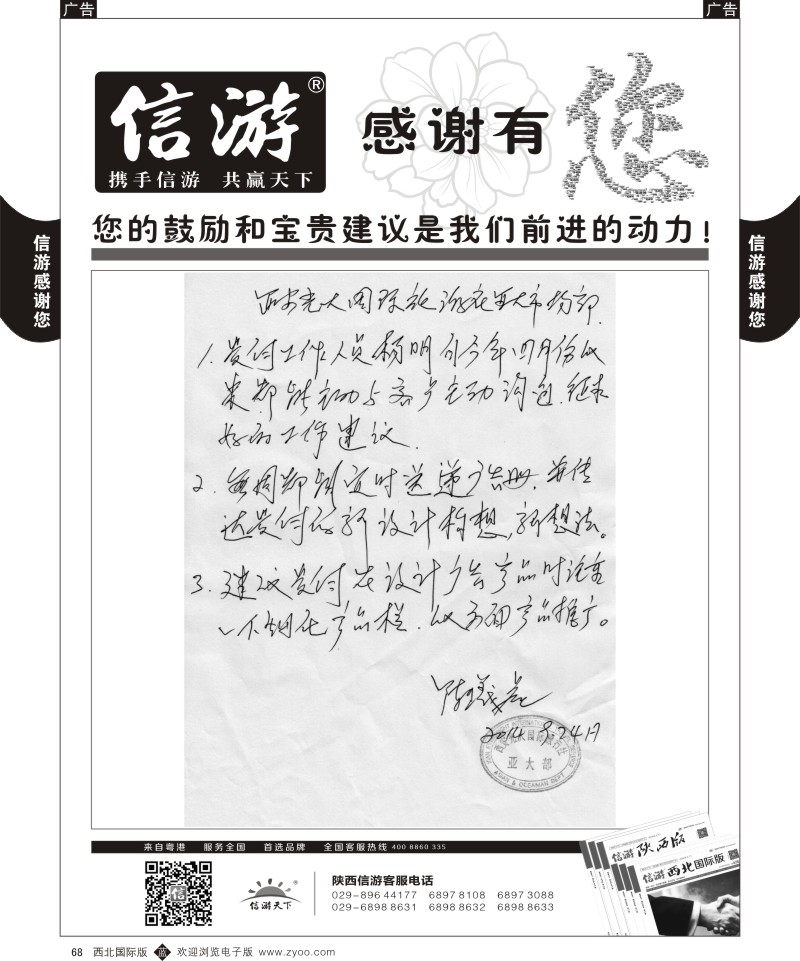 广告
广告
信游®
携手信游 共赢天下
感谢有您
您的鼓励和宝贵建议是我们前进的动力!
信游感谢您
信游感谢您
西安光大国际旅行社亚大市场部
1. 贵付工作人员杨明利今年四月份以
来都能主动与客户主动沟通,征求
好的工作建议.
2. 每周都能定时送递广告册,并传
达贵付的新设计构想,新想法。
3. 建议贵付在设计广告产品时
产品栏,以方便产品推广。
2014 9.24日
亚大部
ASIAN & OCEANIAN DEPT
来自粤港 服务全国 首选品牌 全国客服热线 400 8860 335
信游
信游天下®
陕西信游客服电话
029-896 44177 6897 8108 6897 3088
029-6898 8631 6898 8632 6898 8633
信游 陕西版
信游 西北国际版
68 西北国际版 蓝 欢迎浏览电子版 www.zyoo.com